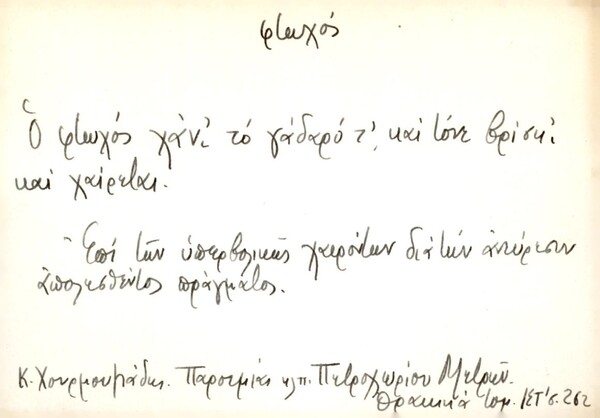 φτωχός
Ὁ φτωχός χάν' τό γάδαρό τ', καί τόνε βρίσκ'
καί χαίρεται.
Ἐπί τῶν ὑπερβολικῶς χαιρόντων διά τήν ἀνεύρεσιν
ἀπολεσθέντος πράγματος.
Κ. Χουρμουζιάδης. Παροιμίαι κλπ. Πετροχωρίου Μετρῶν.
Θρακικά τομ. ΙΣΤ' σ. 262